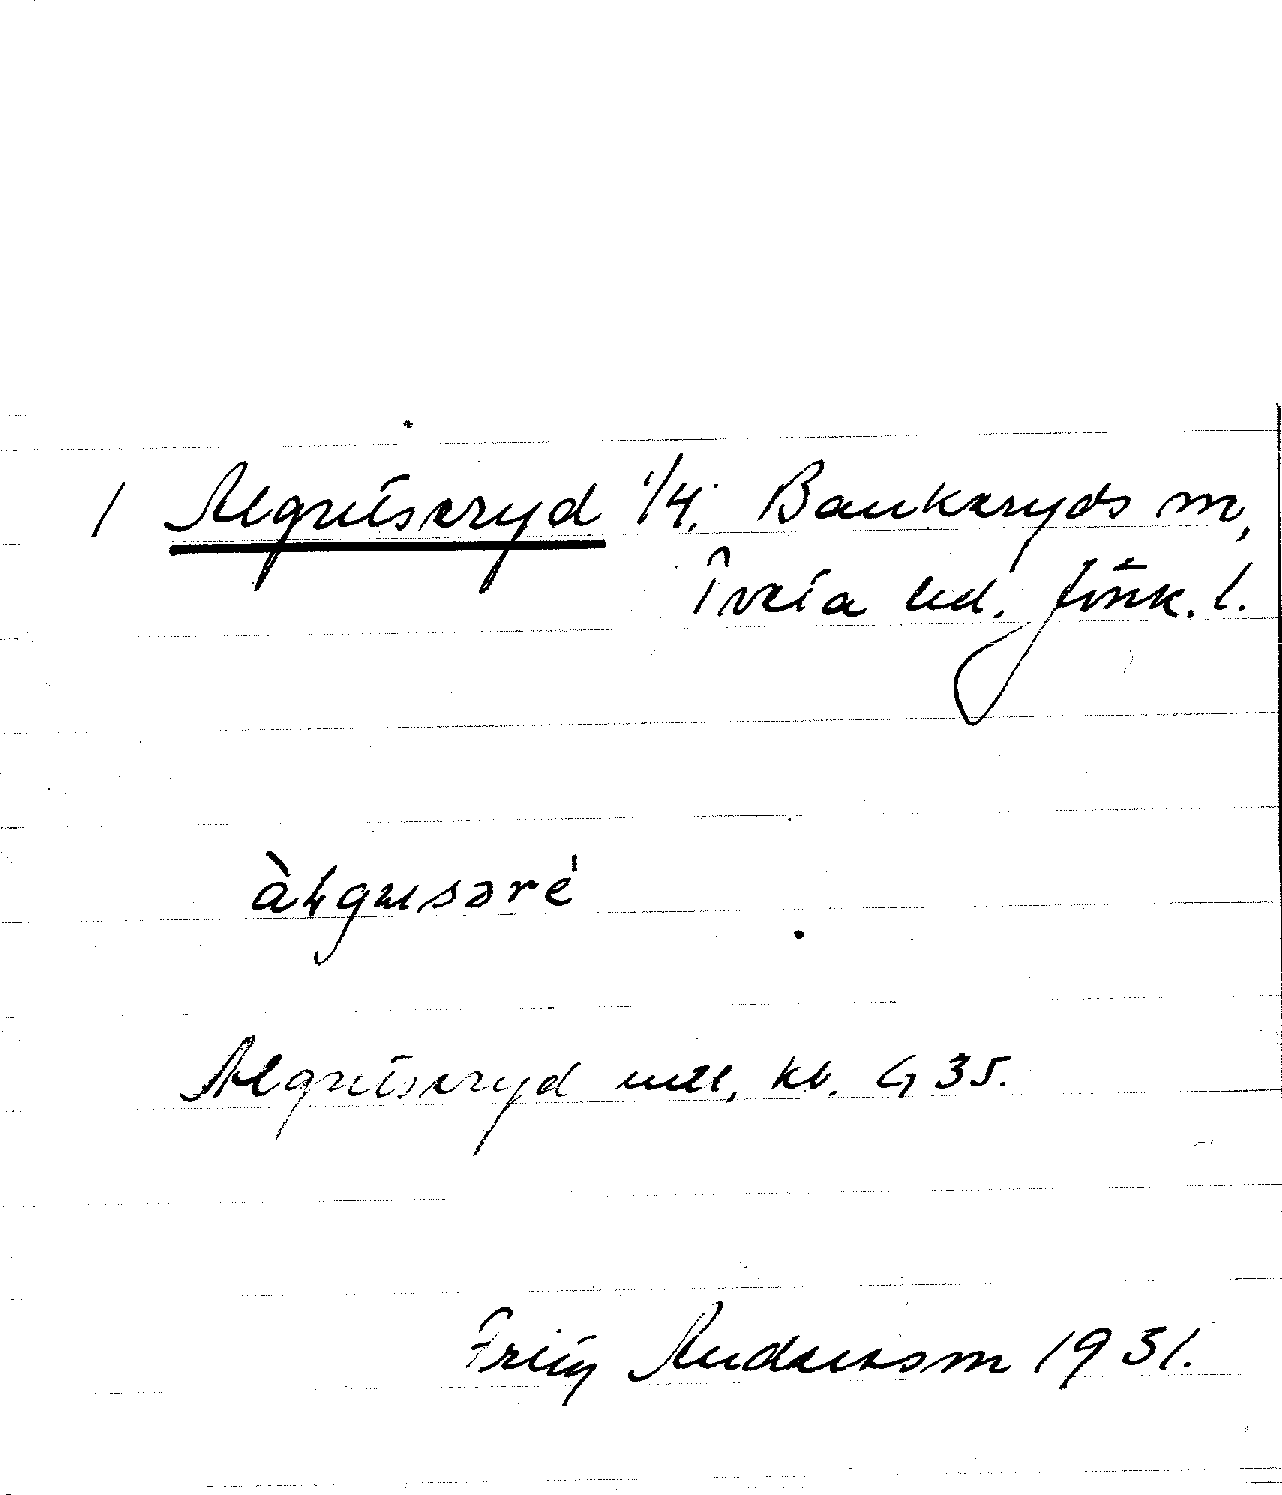 1 Algutseryd 1/4. Bankeryds sn,
Tveta hd, Jönk. l.
Algutseryd enl. kb. G 35.
Fritz Andersson 1931.